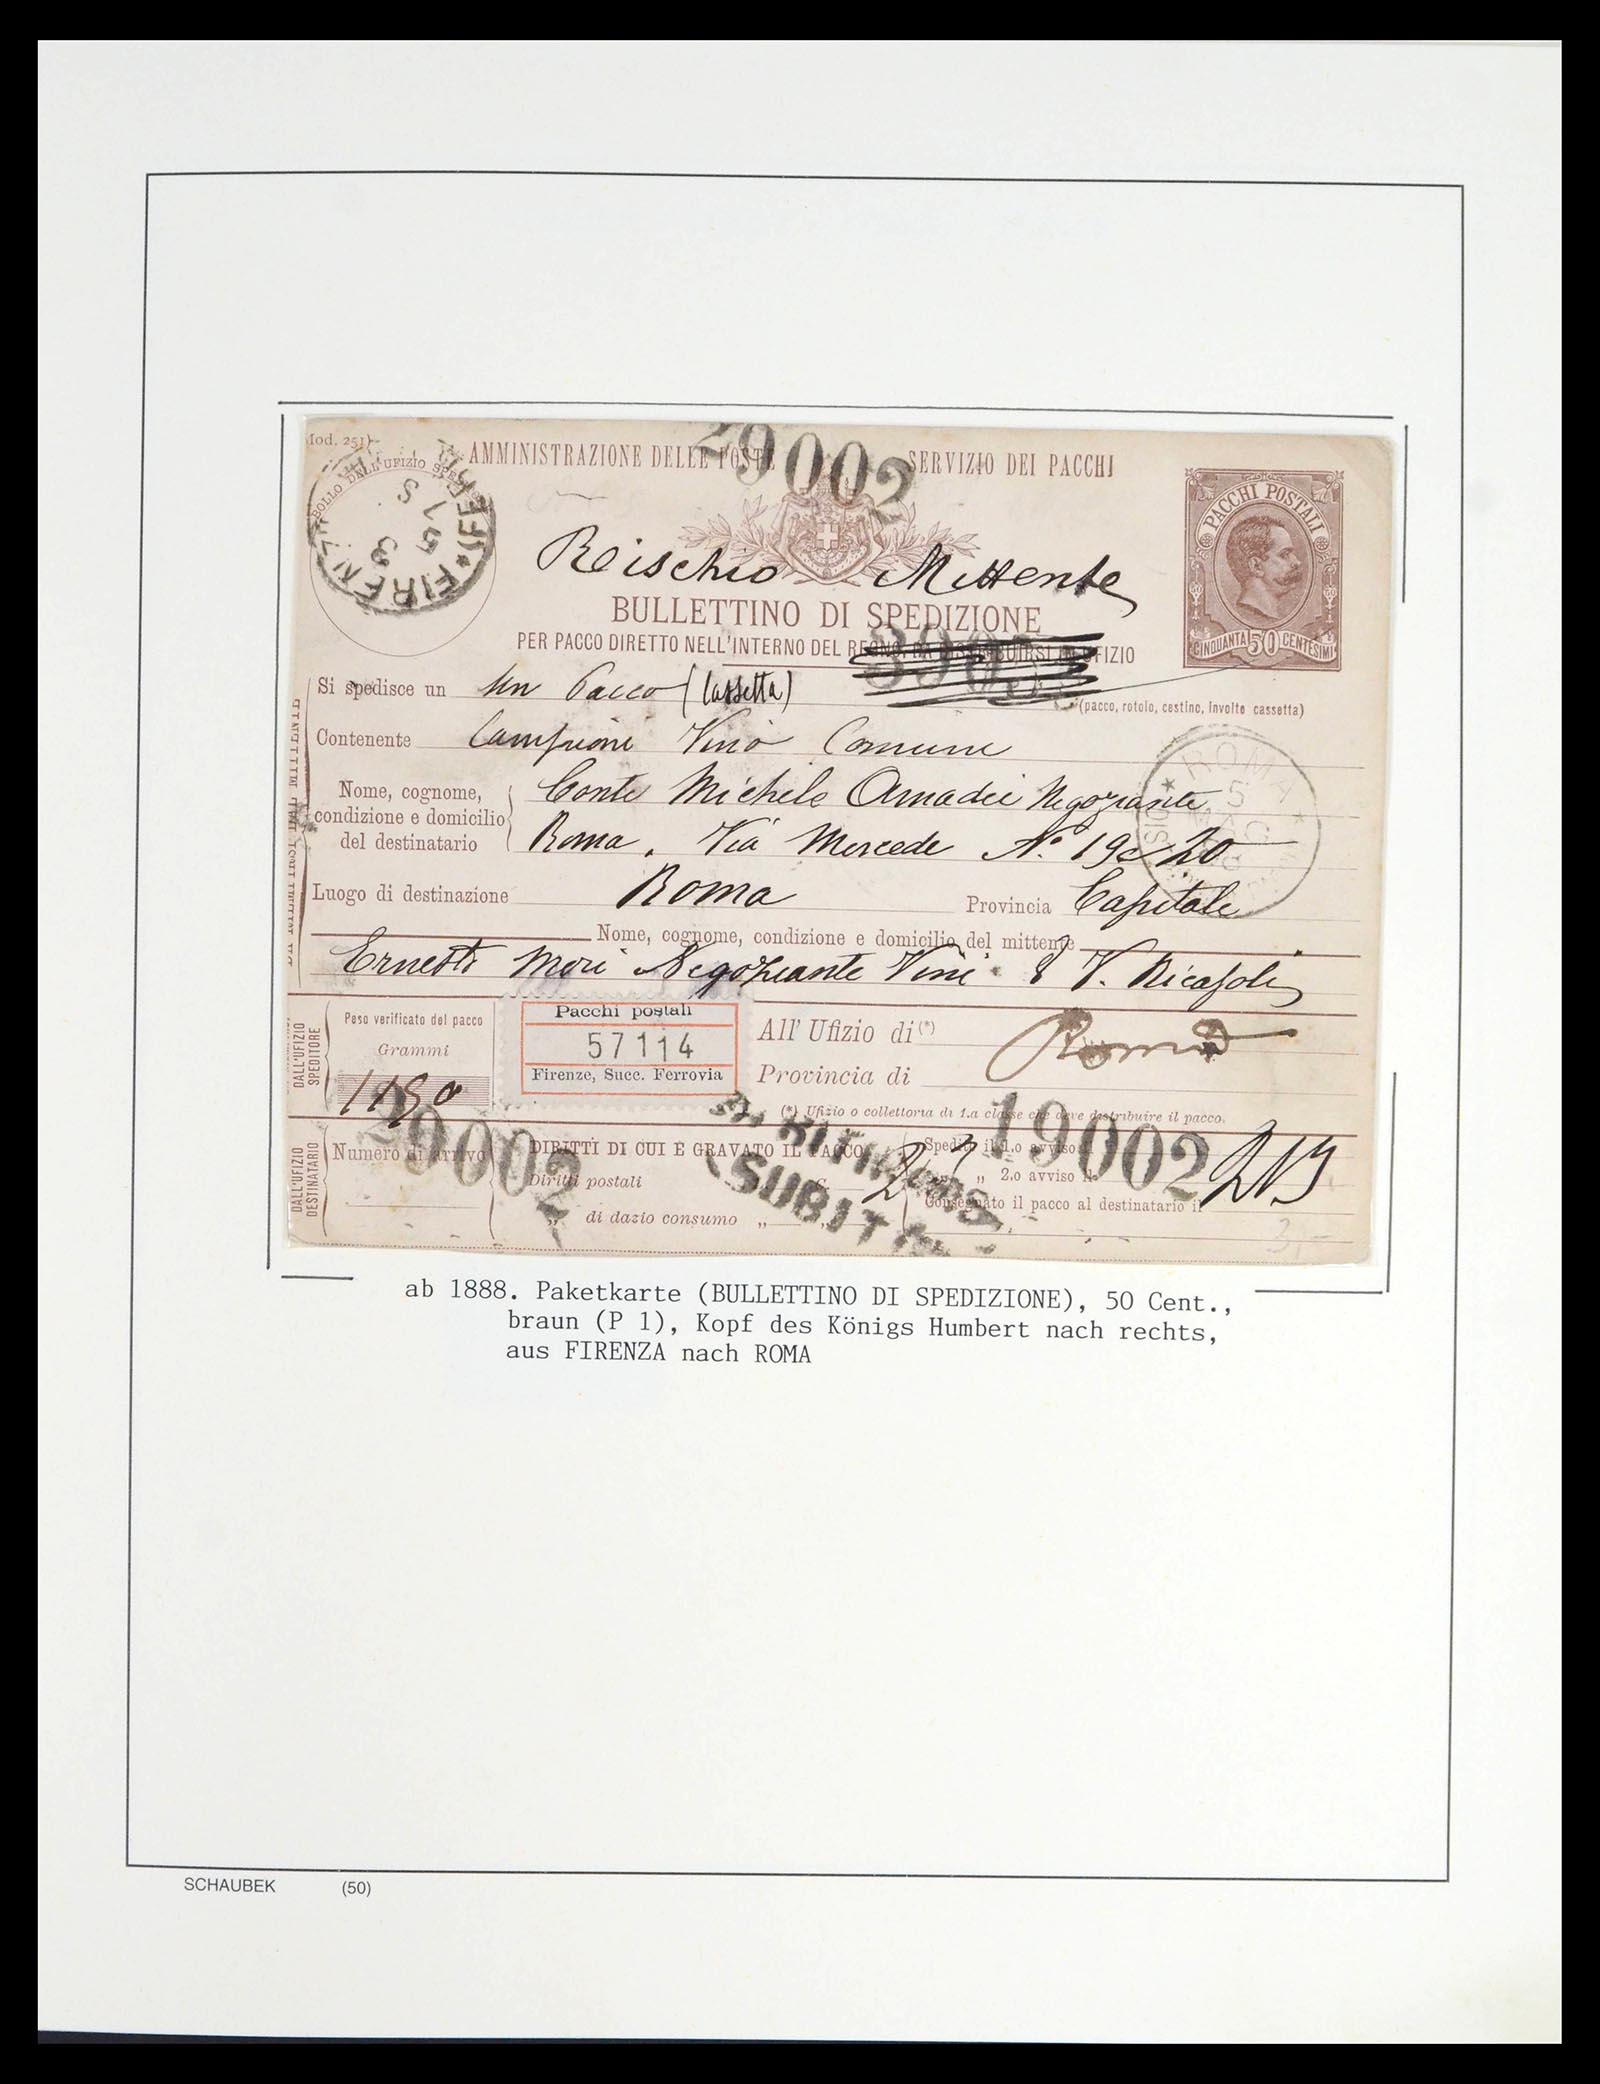 Mod. 251)
AMMINISTRAZIONE DELLE POSTE SERVIZIO DEI PACCHI
29002
BOLLO DELL'UFIZIO
FIRENZE
PACCHI POSTALI
CINQUANTA 50 CENTESIMI
Rischio Mittente
BULLETTINO DI SPEDIZIONE
PER PACCO DIRETTO NELL'INTERNO DEL REGNO, DA DISTRIBUIRSI IN UFIZIO
Si spedisce un Un Pacco (Cassetta)
(pacco, rotolo, cestino, involto cassetta)
Contenente Campioni Vino Comune
ROMA
Nome, cognome, condizione e domicilio del destinatario
Conte Michele Amadei Negoziante
Roma. Via Mercede No. 19 e 20
Luogo di destinazione Roma Provincia Capitale
Nome, cognome, condizione e domicilio del mittente
Ernesto Mori Negoziante Vini 8 V. Ricasoli
DALL'UFIZIO SPEDITORE
Peso verificato del pacco
Grammi
Pacchi postali
57114
Firenze, Succ. Ferrovia
All' Ufizio di (*) Roma
Provincia di
(*) Ufizio o collettoria di 1.a classe che deve distribuire il pacco.
29002
19002
DALL'UFIZIO DESTINATARIO
Numero di arrivo
DIRITTI DI CUI È GRAVATO IL PACCO
Diritti postali
„ di dazio consumo „
Spedito il 1.o avviso
„ „ 2.o avviso il
Consegnato il pacco al destinatario il
213
SUBITO
3,-
ab 1888. Paketkarte (BULLETTINO DI SPEDIZIONE), 50 Cent.,
braun (P 1), Kopf des Königs Humbert nach rechts,
aus FIRENZA nach ROMA
SCHAUBEK (50)